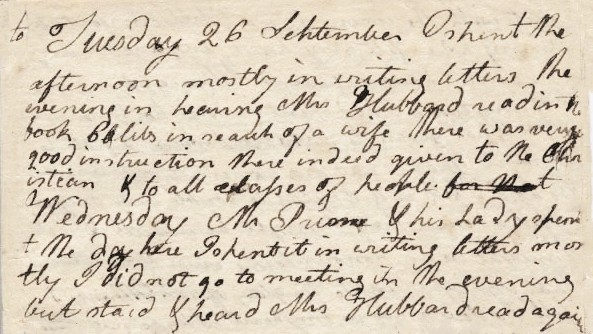 to Tuesday 26 September I spent the
afternoon mostly in writing letters The
evening in hearing Mrs Hubbard read in the
book Cœlibs in search of a wife There was very
good instruction there indeed given to the Chr
istian & to all classes of people for that
Wednesday Mr & his Lady spen
t the day here I spent it in writing letters mos
tly I did not go to meeting in the evening
but staid & heard Mrs Hubbard read again